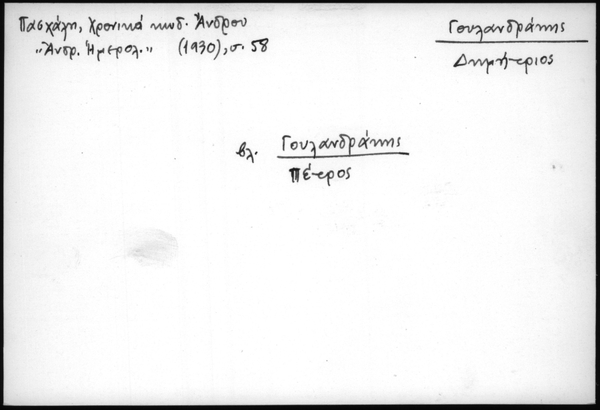 Πασχάλη, Χρονικά κωδ. Άνδρου
"Άνδρ. Ημερολ." (1930), σ. 58
Γουλανδράκης
Δημήτριος
βλ. Γουλανδράκης
Πέτρος